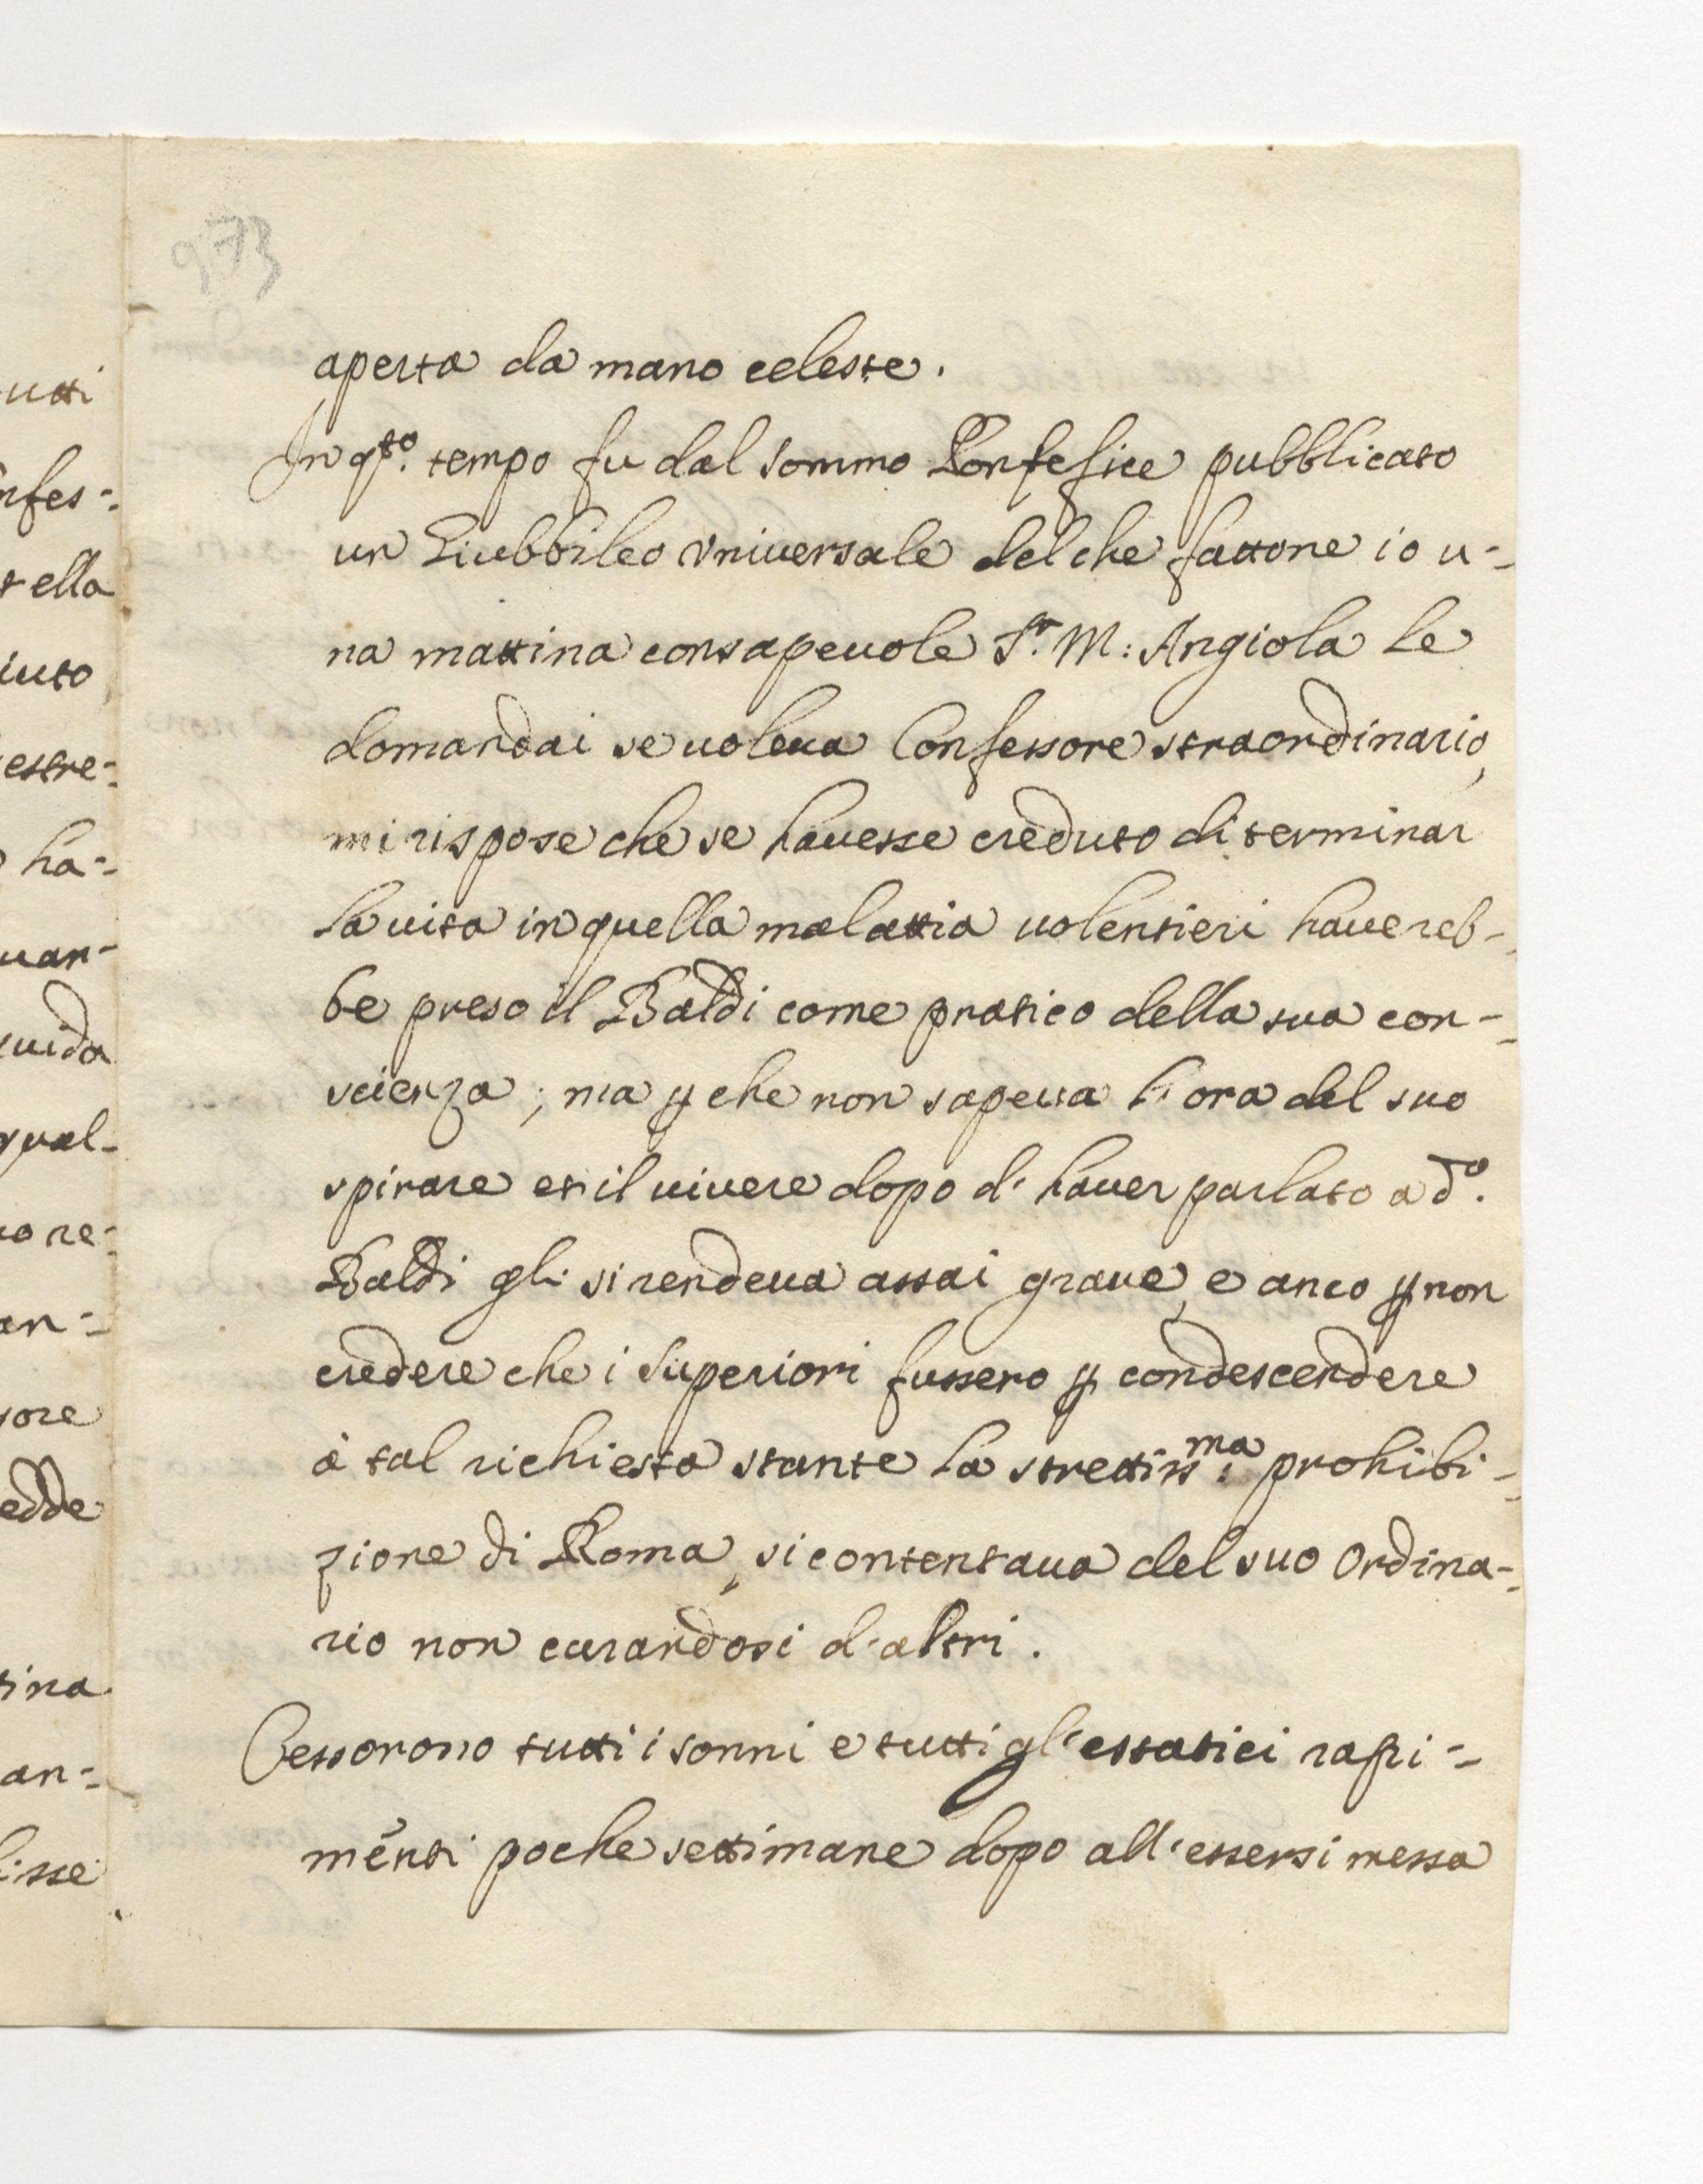 973
aperta da mano celeste.
In q.sto tempo fu dal sommo Pontefice pubblicato
un Giubbileo vniuersale del che fattone io u-
na mattina consapeuole S.r M: Angiola le
domandai se uoleua Confessore straordinario,
mi rispose che se hauesse creduto di terminar
la uita in quella malattia uolentieri hauereb-
be preso il Baldi come pratico della sua con-
scienza; ma p che non sapeua l'ora del suo
spirare et il uiuere dopo d'hauer parlato a d.o
Baldi gli si rendeua assai graue, e anco p non
credere che i Superiori fussero p condescendere
à tal richiesta stante la strettiss.ma prohibi-
zione di Roma, si contentaua del suo Ordina-
rio non curandosi d'altri.
Cessorono tutti i sonni e tutti gl'estatici rapi-
menti poche settimane dopo all'essersi messa
utti
nfes-
ella
iuto
estre-
ha-
uan-
uida
qual-
re-
an-
sore
edde
tina
an-
isse